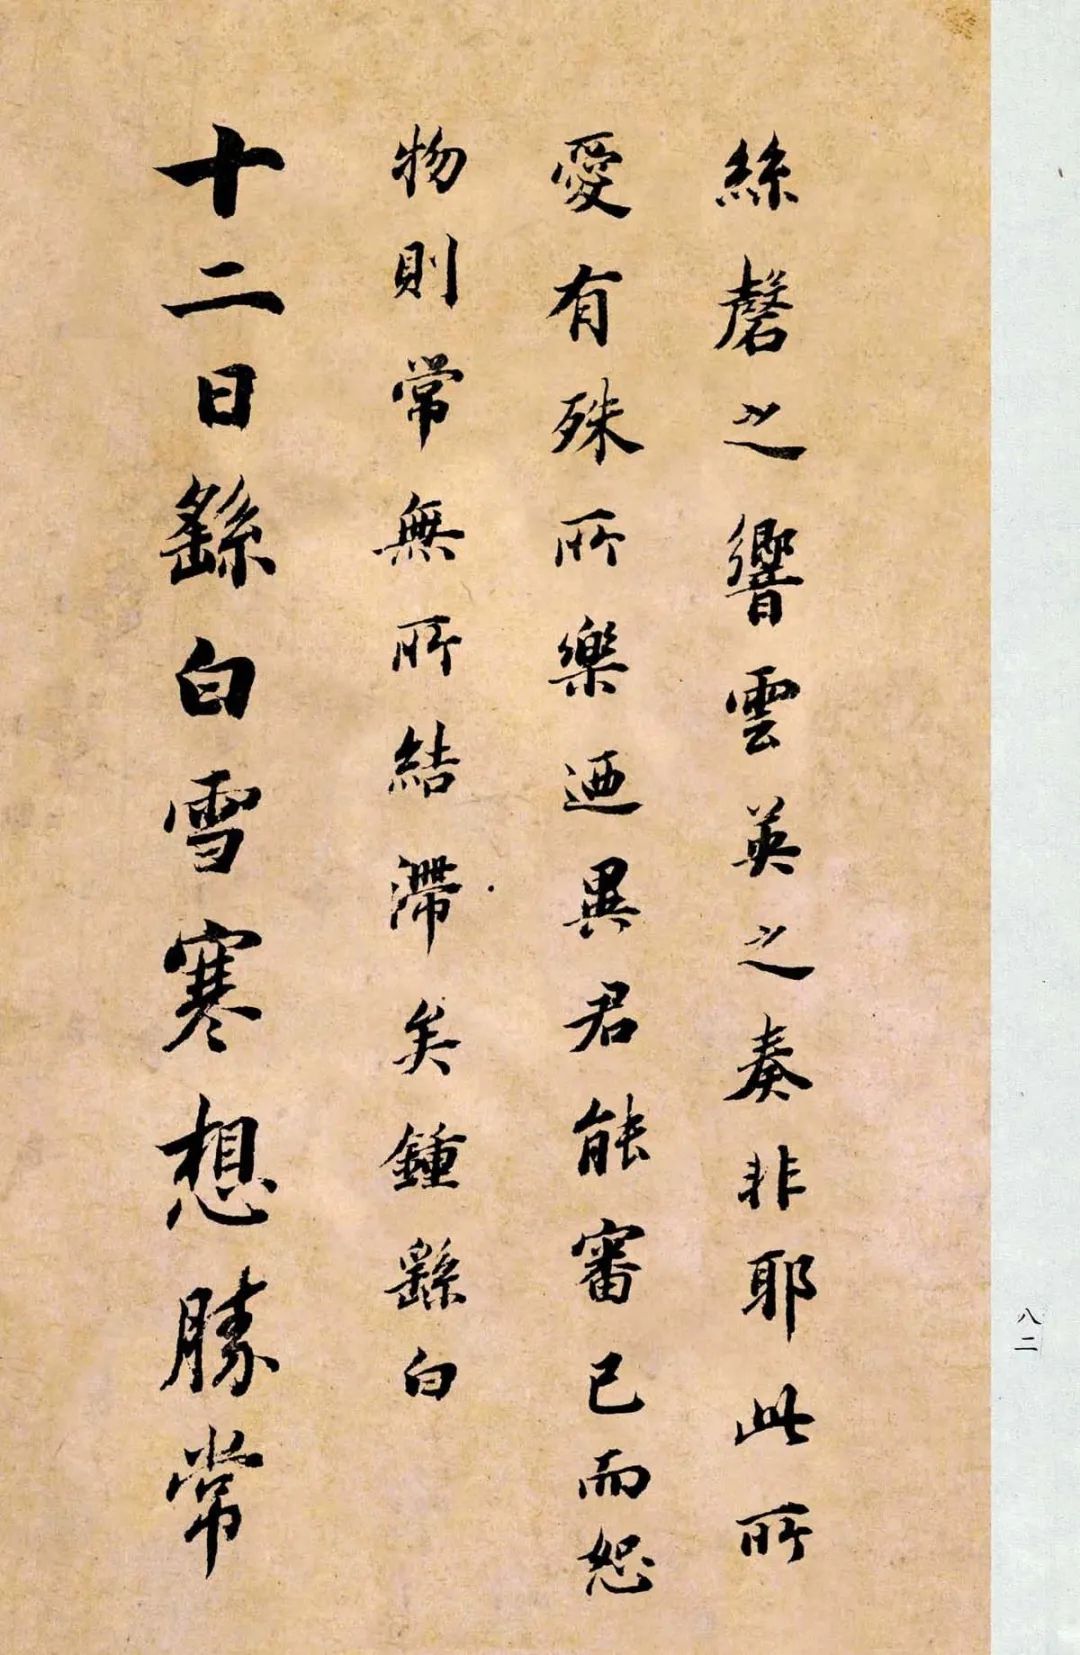 絲磬之響雲英之奏非耶此所
愛有殊所樂迺異君能審己而恕
物則常無所結滯矣鍾繇白
十二日繇白雪寒想勝常
八二